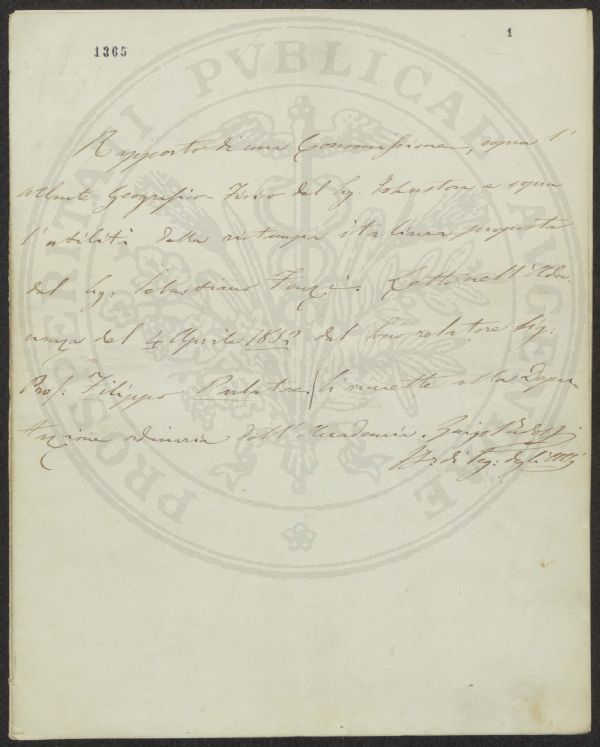 1365
1
PROSPERITATI PVBLICAE AVGENDAE
Rapporto di una Commissione, sopra l'
atlante Geografico-Fisico del Sig. Johnston e sopra
l'utilità della ristampa italiana proposta
dal Sig. Sebastiano Fenzi. Letto nell'Adu-
nanza del 4 Aprile 1852 dal Suo relatore Sig:
Prof. Filippo Parlatore. Si rimette alla Depu-
tazione ordinaria dell'Accademia. Luigi
degli Atti